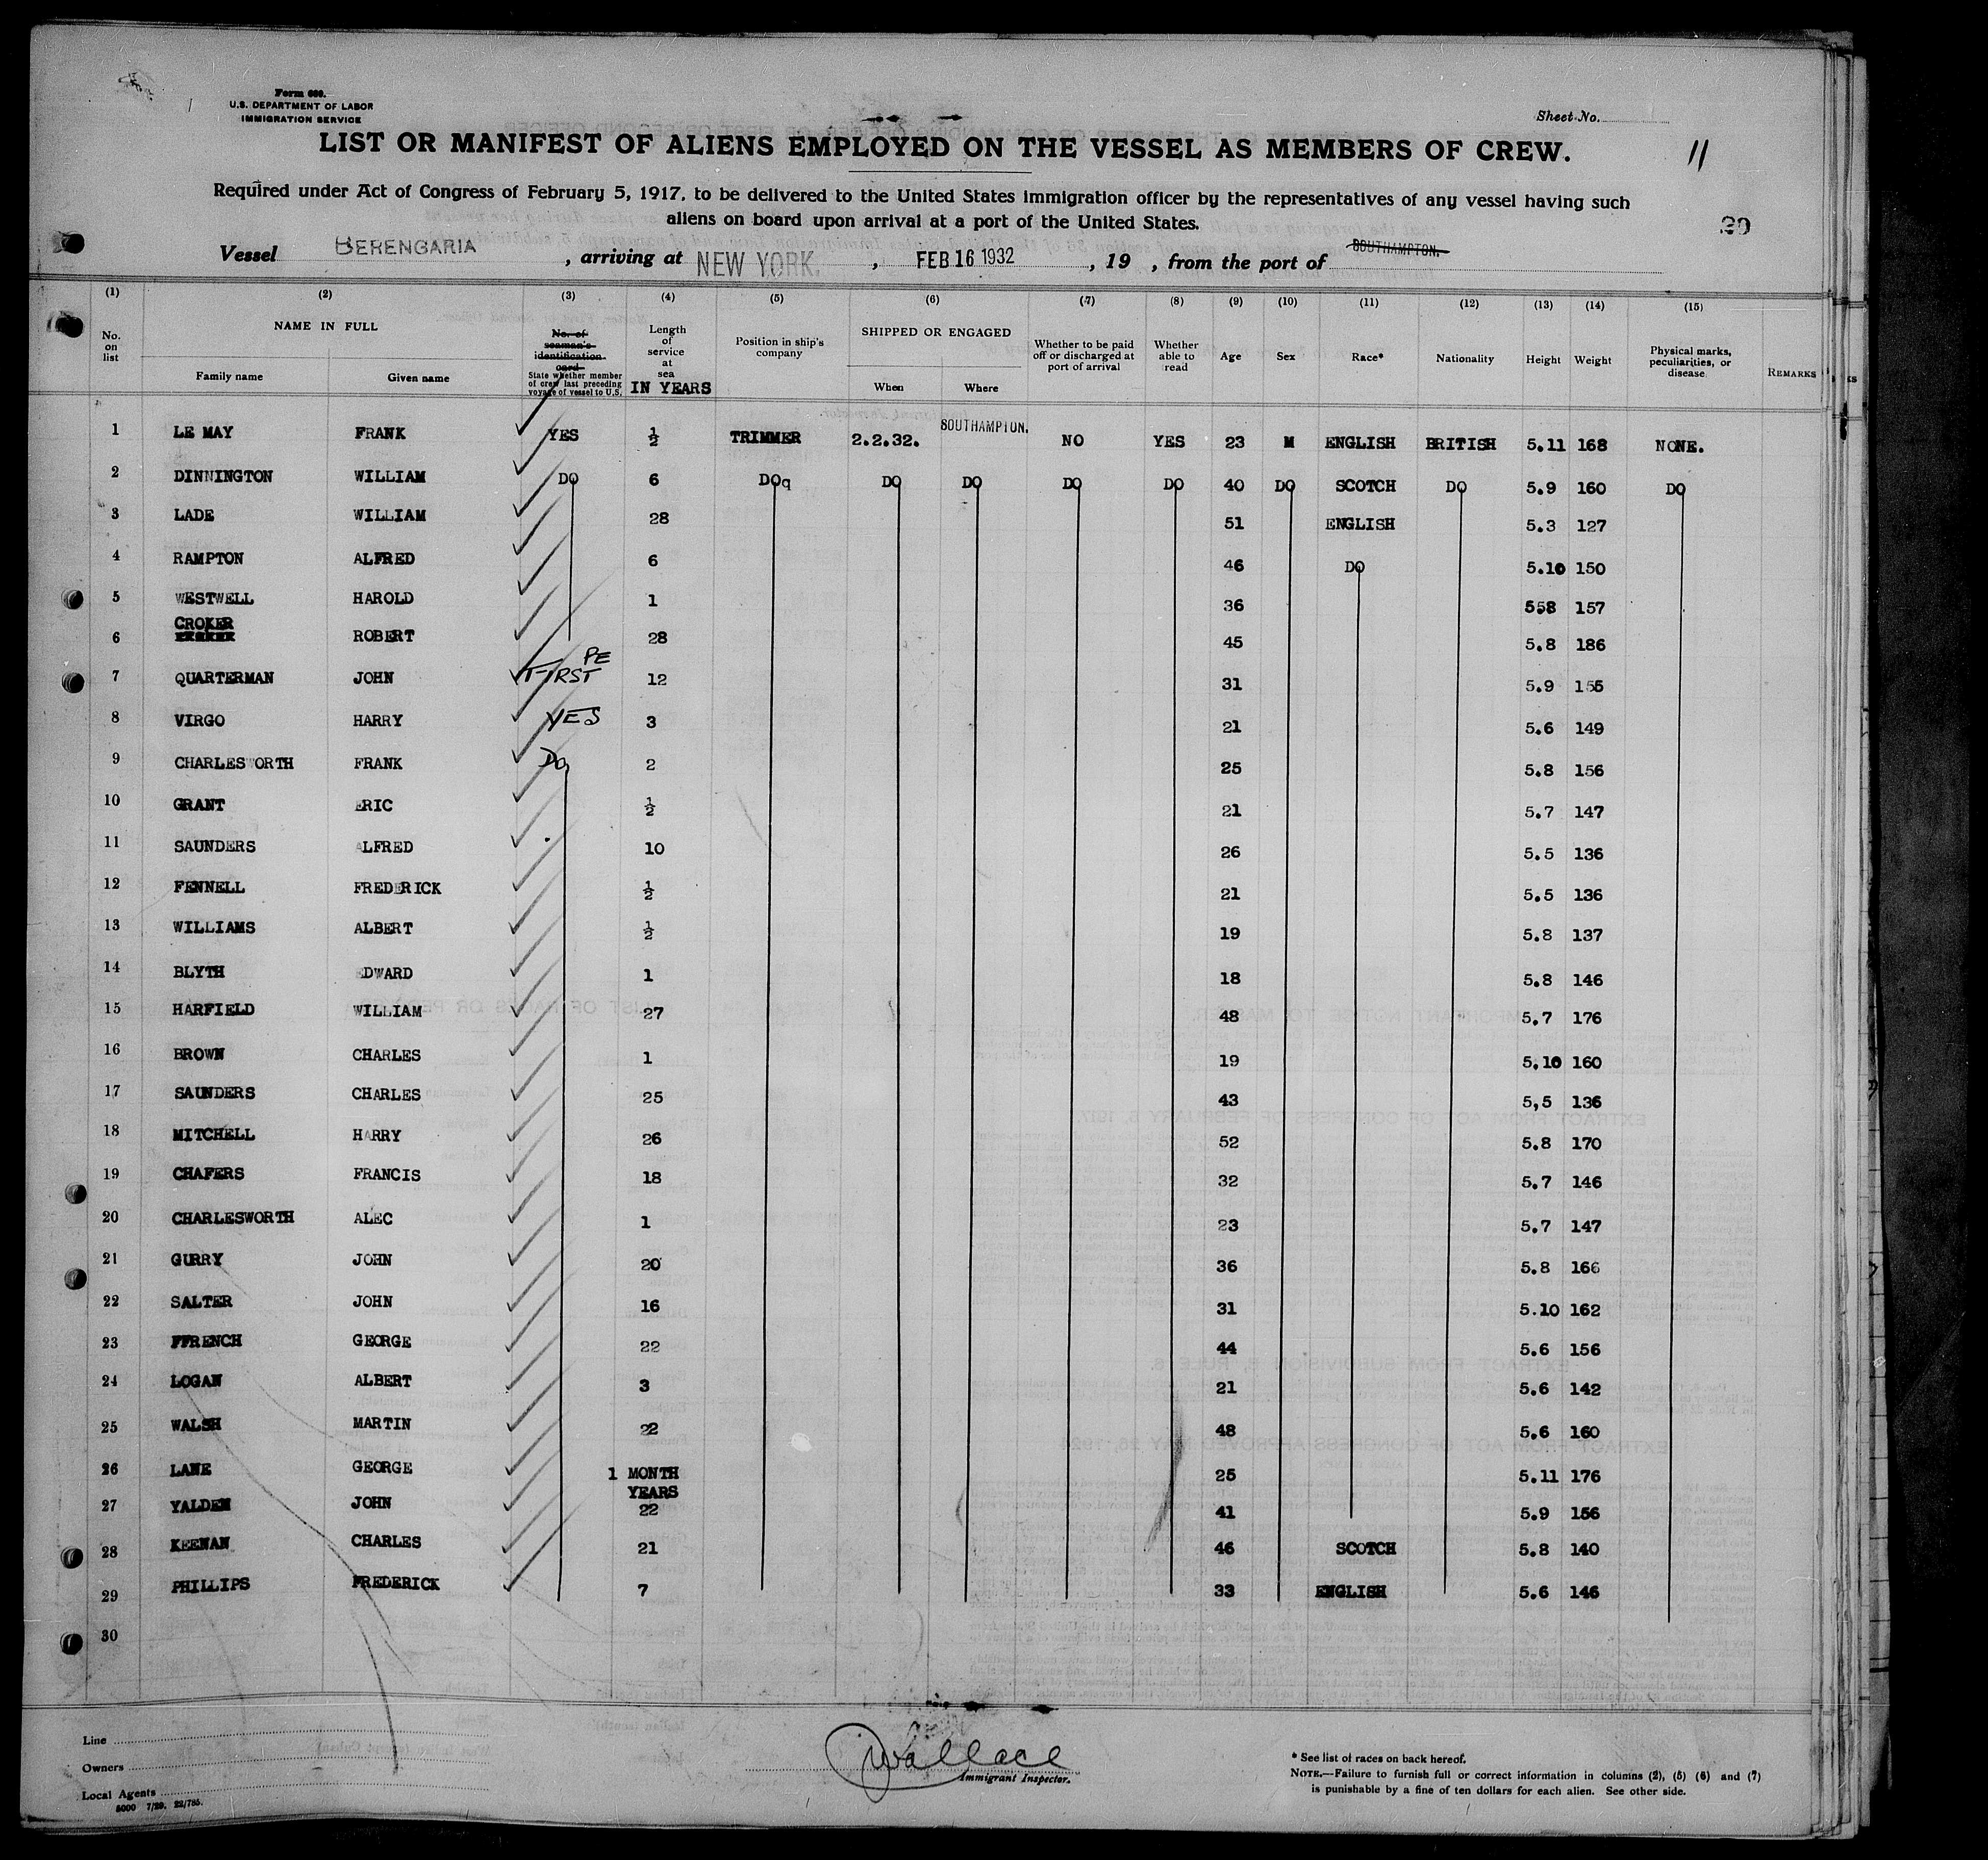 Form 680.
U.S. DEPARTMENT OF LABOR
IMMIGRATION SERVICE
Sheet No.
LIST OR MANIFEST OF ALIENS EMPLOYED ON THE VESSEL AS MEMBERS OF CREW.
11
Required under Act of Congress of February 5, 1917, to be delivered to the United States immigration officer by the representatives of any vessel having such
aliens on board upon arrival at a port of the United States.
Vessel BERENGARIA, arriving at NEW YORK. , FEB 16 1932, 19 , from the port of SOUTHAMPTON.
(1) (2) (3) (4) (5) (6) (7) (8) (9) (10) (11) (12) (13) (14) (15)
No. on list NAME IN FULL Family name Given name No. of seaman's identification card State whether member of crew last preceding voyage of vessel to U.S. Length of service at sea IN YEARS Position in ship's company SHIPPED OR ENGAGED When Where Whether to be paid off or discharged at port of arrival Whether able to read Age Sex Race* Nationality Height Weight Physical marks, peculiarities, or disease REMARKS
1 LE MAY FRANK YES ½ TRIMMER 2.2.32. SOUTHAMPTON. NO YES 23 M ENGLISH BRITISH 5.11 168 NONE.
2 DINNINGTON WILLIAM DO 6 DOq DO DO DO DO 40 DO SCOTCH DO 5.9 160 DO
3 LADE WILLIAM 28 51 ENGLISH 5.3 127
4 RAMPTON ALFRED 6 46 DO 5.10 150
5 WESTWELL HAROLD 1 36 558 157
6 CROKER ROBERT 28 45 5.8 186
7 QUARTERMAN JOHN FIRST PE 12 31 5.9 155
8 VIRGO HARRY YES 3 21 5.6 149
9 CHARLESWORTH FRANK Do 2 25 5.8 156
10 GRANT ERIC ½ 21 5.7 147
11 SAUNDERS ALFRED 10 26 5.5 136
12 FENNELL FREDERICK ½ 21 5.5 136
13 WILLIAMS ALBERT ½ 19 5.8 137
14 BLYTH EDWARD 1 18 5.8 146
15 HARFIELD WILLIAM 27 48 5.7 176
16 BROWN CHARLES 1 19 5.10 160
17 SAUNDERS CHARLES 25 43 5,5 136
18 MITCHELL HARRY 26 52 5.8 170
19 CHAFERS FRANCIS 18 32 5.7 146
20 CHARLESWORTH ALEC 1 23 5.7 147
21 GURRY JOHN 20 36 5.8 166
22 SALTER JOHN 16 31 5.10 162
23 FFRENCH GEORGE 22 44 5.6 156
24 LOGAN ALBERT 3 21 5.6 142
25 WALSH MARTIN 22 48 5.6 160
26 LANE GEORGE 1 MONTH 25 5.11 176
27 YALDEN JOHN YEARS 22 41 5.9 156
28 KEENAN CHARLES 21 46 SCOTCH 5.8 140
29 PHILLIPS FREDERICK 7 33 ENGLISH 5.6 146
30
Line
Owners
Local Agents
5000 7/29. 22/785.
Wallace
Immigrant Inspector.
* See list of races on back hereof.
NOTE.—Failure to furnish full or correct information in columns (2), (5) (6) and (7)
is punishable by a fine of ten dollars for each alien. See other side.